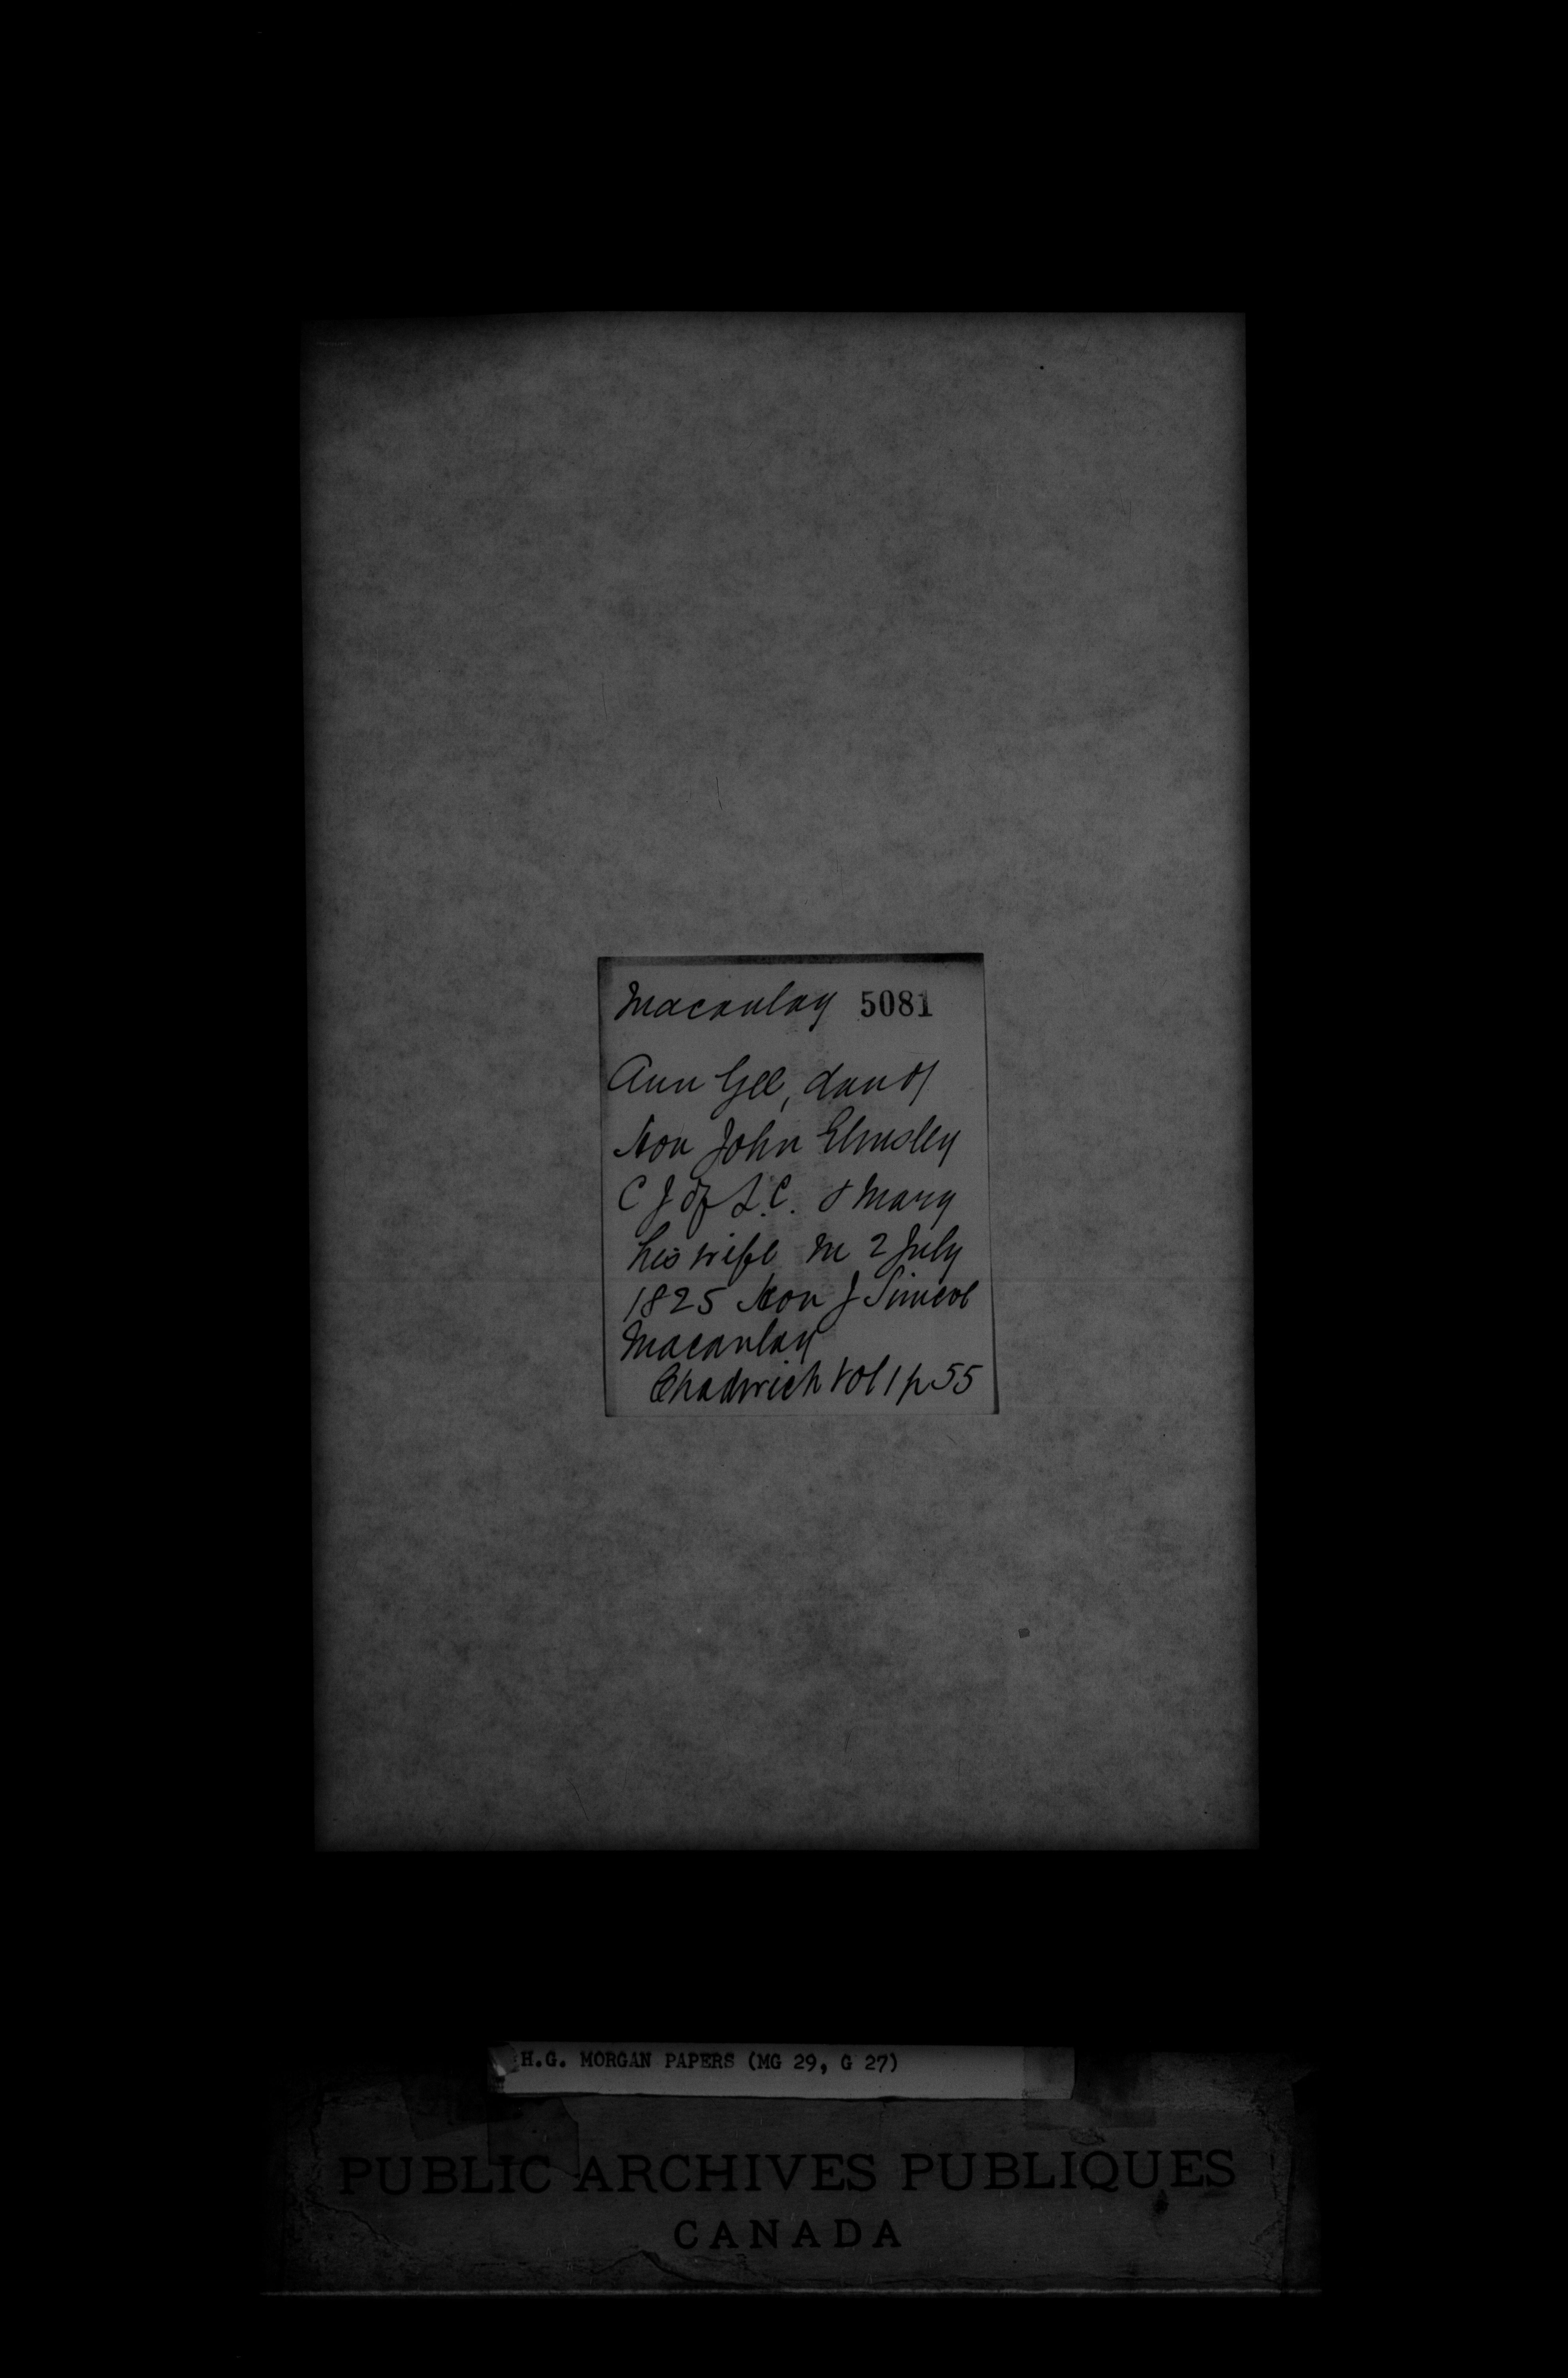 Macaulay 5081
Ann Gee, dau of
Hon John Elmsley
C J of L.C. & Mary
his wife m 2 July
1825 Hon J Simcoe
Macaulay
Chadwick Vol 1 p 55
H.G. MORGAN PAPERS (MG 29, G 27)
PUBLIC ARCHIVES PUBLIQUES
CANADA